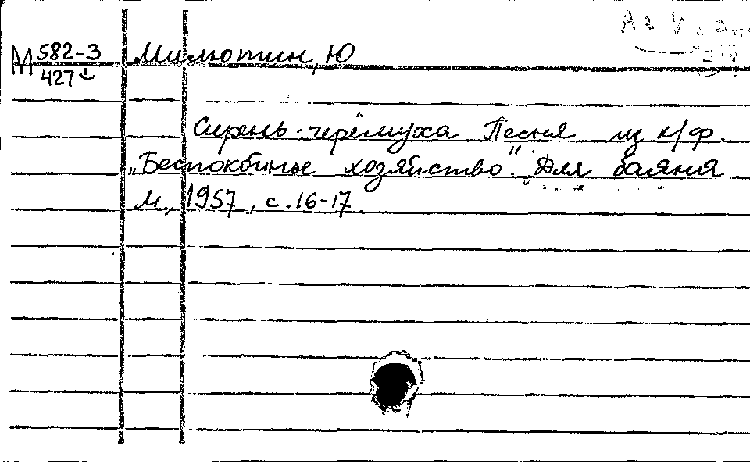 М 582-3 Милютин, Ю
427
Сирень-черёмуха Песня из к/ф.
„Беспокойное хозяйство". Для баяна
М, 1957, с. 16-17.